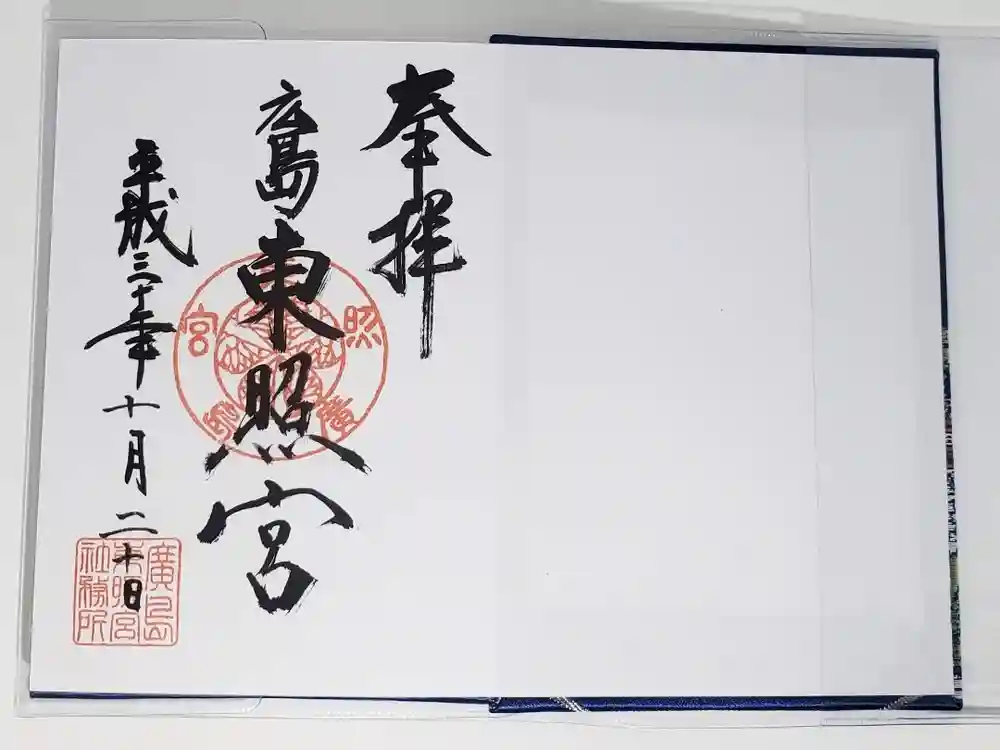 奉拝
広島東照宮
平成三十年十月二十日
照宮
廣島
東照宮
社務所